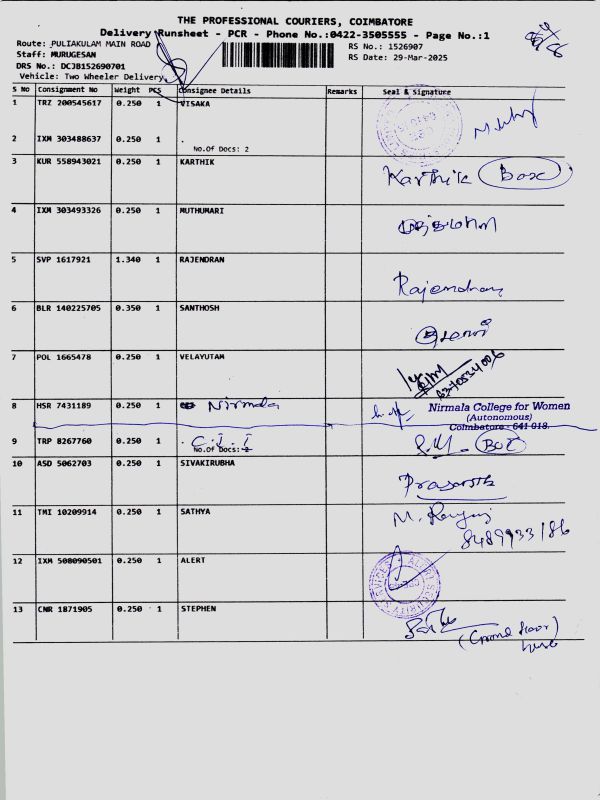 THE PROFESSIONAL COURIERS, COIMBATORE
Delivery Runsheet - PCR - Phone No.:0422-3505555 - Page No.:1
Route: PULIAKULAM MAIN ROAD
RS No.: 1526907
Staff: MURUGESAN
RS Date: 29-Mar-2025
DRS No.: DCJB152690701
Vehicle: Two Wheeler Delivery
S No Consignment No Weight PCS Consignee Details Remarks Seal & Signature
1 TRZ 200545617 0.250 1 VISAKA
2 IXM 303488637 0.250 1
No.Of Docs: 2
3 KUR 558943021 0.250 1 KARTHIK Karthik Box
4 IXM 303493326 0.250 1 MUTHUMARI
5 SVP 1617921 1.340 1 RAJENDRAN Rajendran
6 BLR 140225705 0.350 1 SANTHOSH
7 POL 1665478 0.250 1 VELAYUTAM
8 HSR 7431189 0.250 1 Nirmala Nirmala College for Women
(Autonomous)
Coimbatore - 641 018.
9 TRP 8267760 0.250 1 C.I.T
No.Of Docs: 2
10 ASD 5062703 0.250 1 SIVAKIRUBHA Prasanth
11 TMI 10209914 0.250 1 SATHYA
8489933186
12 IXM 508090501 0.250 1 ALERT ALERT SECURITY SERVICES
13 CNR 1871905 0.250 1 STEPHEN